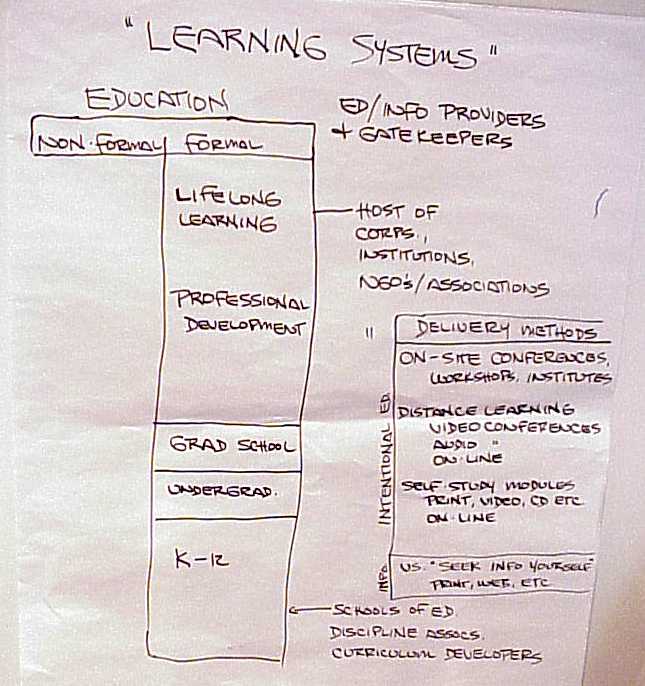 "LEARNING SYSTEMS"
EDUCATION
NON-FORMAL FORMAL
LIFELONG
LEARNING
PROFESSIONAL
DEVELOPMENT
GRAD SCHOOL
UNDERGRAD.
K-12
ED/INFO PROVIDERS
+ GATEKEEPERS
HOST OF
CORPS.,
INSTITUTIONS,
NGO'S/ASSOCIATIONS
"
DELIVERY METHODS
INTENTIONAL ED.
ON-SITE CONFERENCES,
WORKSHOPS, INSTITUTES
DISTANCE LEARNING
VIDEO CONFERENCES
AUDIO "
ON-LINE
SELF-STUDY MODULES
PRINT, VIDEO, CD ETC
ON-LINE
INFO
VS. "SEEK INFO YOURSELF"
PRINT, WEB, ETC
SCHOOLS OF ED.
DISCIPLINE ASSOCS.
CURRICULUM DEVELOPERS